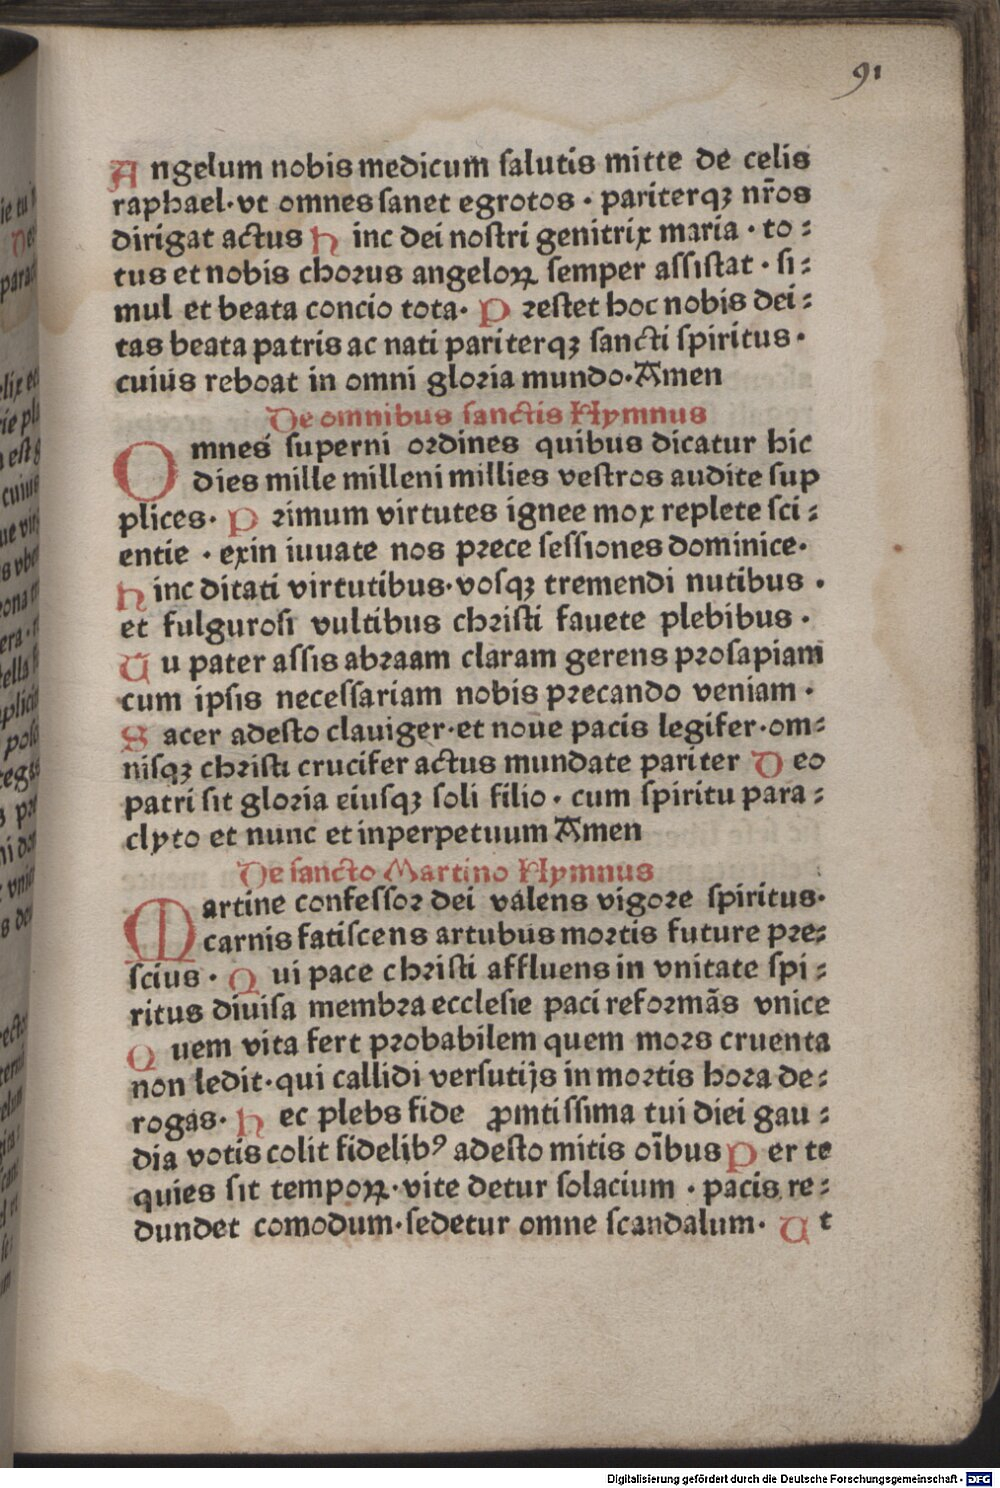 91
Angelum nobis medicum ſalutis mitte de celis
raphael·vt omnes ſanet egrotos · pariterqꝫ nr̄os
dirigat actus Hinc dei noſtri genitrix maria · to⸗
tus et nobis chorus angeloꝝ ſemper aſſiſtat · ſi⸗
mul et beata concio tota· Preſtet hoc nobis dei⸗
tas beata patris ac nati pariterqꝫ ſancti ſpiritus ·
cuius reboat in omni gloria mundo·Amen
De omnibus ſanctis Hymnus
Omnes ſuperni ordines quibus dicatur hic
dies mille milleni millies veſtros audite ſup
plices· Primum virtutes ignee mox replete ſci⸗
entie · exin iuuate nos prece ſeſſiones dominice·
Hinc ditati virtutibus·voſqꝫ tremendi nutibus ·
et fulguroſi vultibus chriſti fauete plebibus ·
Uu pater aſſis abraam claram gerens proſapiam
cum ipſis neceſſariam nobis precando veniam ·
Sacer adeſto clauiger·et noue pacis legifer·om⸗
niſqꝫ chriſti crucifer actus mundate pariter Deo
patri ſit gloria eiuſqꝫ ſoli filio · cum ſpiritu para⸗
clyto et nunc et inperpetuum Amen
De ſancto Martino Hymnus
Martine confeſſor dei valens vigore ſpiritus·
carnis fatiſcens artubus mortis future pre⸗
ſcius · Qui pace chriſti affluens in vnitate ſpi⸗
ritus diuiſa membra eccleſie paci reformās vnice
Quem vita fert probabilem quem mors cruenta
non ledit·qui callidi verſutijs in mortis hora de⸗
rogas· Hec plebs fide ꝓmtiſſima tui diei gau⸗
dia votis colit fidelibꝰ adeſto mitis oī̄bus Per te
quies ſit tempoꝝ·vite detur ſolacium · pacis re⸗
dundet comodum·ſedetur omne ſcandalum· Ut
Digitalisierung gefördert durch die Deutsche Forschungsgemeinschaft - DFG